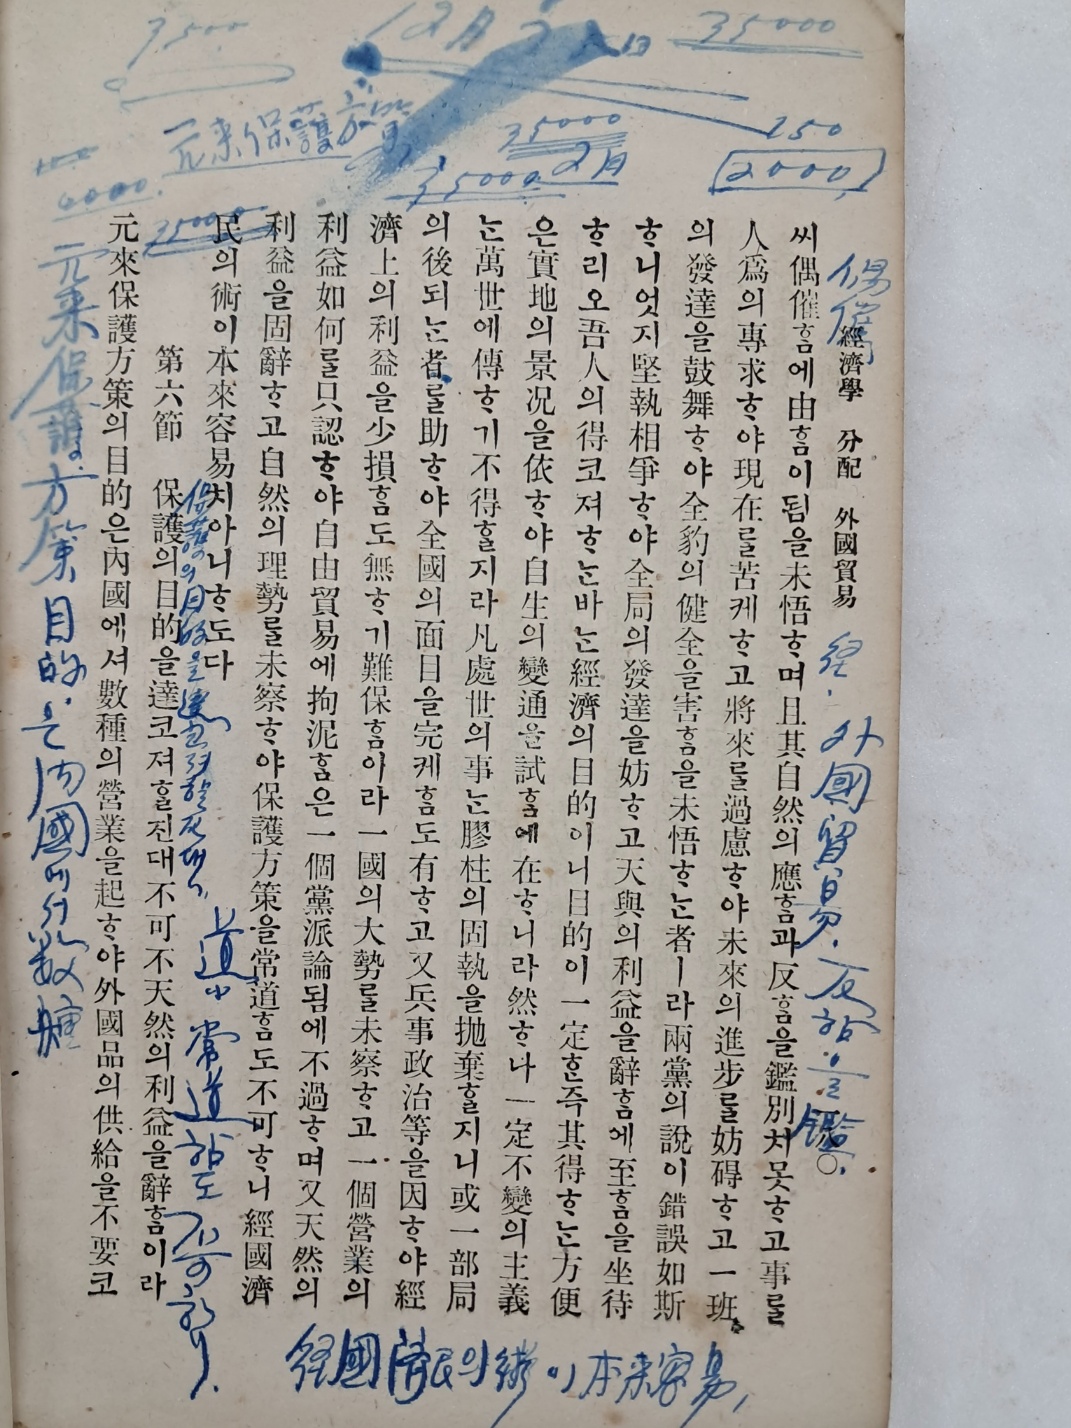 經濟學 分配 外國貿易
씨偶催ᄒᆞᆷ에由ᄒᆞᆷ이됨을未悟ᄒᆞ며且其自然의應ᄒᆞᆷ과反ᄒᆞᆷ을鑑別치못ᄒᆞ고事를
人爲의專求ᄒᆞ야現在를苦케ᄒᆞ고將來를過慮ᄒᆞ야未來의進步를妨碍ᄒᆞ고一班
의發達을鼓舞ᄒᆞ야全豹의健全을害ᄒᆞᆷ을未悟ᄒᆞᄂᆞᆫ者ㅣ라兩黨의說이錯誤如斯
ᄒᆞ니엇지堅執相爭ᄒᆞ야全局의發達을妨ᄒᆞ고天與의利益을辭ᄒᆞᆷ에至ᄒᆞᆷ을坐待
ᄒᆞ리오吾人의得코져ᄒᆞᄂᆞᆫ바ᄂᆞᆫ經濟의目的이니目的이一定ᄒᆞᆫ즉其得ᄒᆞᄂᆞᆫ方便
은實地의景况을依ᄒᆞ야自生의變通을試ᄒᆞᆷ에在ᄒᆞ니라然ᄒᆞ나一定不變의主義
ᄂᆞᆫ萬世에傳ᄒᆞ기不得ᄒᆞᆯ지라凡處世의事ᄂᆞᆫ膠柱의固執을拋棄ᄒᆞᆯ지니或一部局
의後되ᄂᆞᆫ者를助ᄒᆞ야全國의面目을完케ᄒᆞᆷ도有ᄒᆞ고又兵事政治等을因ᄒᆞ야經
濟上의利益을少損ᄒᆞᆷ도無ᄒᆞ기難保ᄒᆞᆷ이라一國의大勢를未察ᄒᆞ고一個營業의
利益如何를只認ᄒᆞ야自由貿易에拘泥ᄒᆞᆷ은一個黨派論됨에不過ᄒᆞ며又天然의
利益을固辭ᄒᆞ고自然의理勢를未察ᄒᆞ야保護方策을常道ᄒᆞᆷ도不可ᄒᆞ니經國濟
民의術이本來容易치아니ᄒᆞ도다
第六節 保護의目的을達코져ᄒᆞᆯ진대不可不天然의利益을辭ᄒᆞᆷ이라
元來保護方策의目的은內國에셔數種의營業을起ᄒᆞ야外國品의供給을不要코
3500
12月
35000
元来保護方策
35000
2月
35000
150
2000
0000
35000
偶催
経
外國貿易
反함을鑑
保護의目的을達코져할진대
道
常道함도不可하니
元来保護方策
目的은内國에서數種
経國濟民의術이本来容易